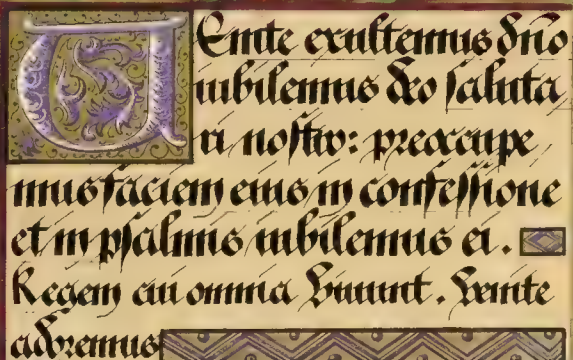 Venite exultemus dño
iubilemus deo saluta
ri nostro: preoccupe
mus faciem eius in confessione
et in psalmis iubilemus ei.
Regem cui omnia viuunt. Venite
adoremus